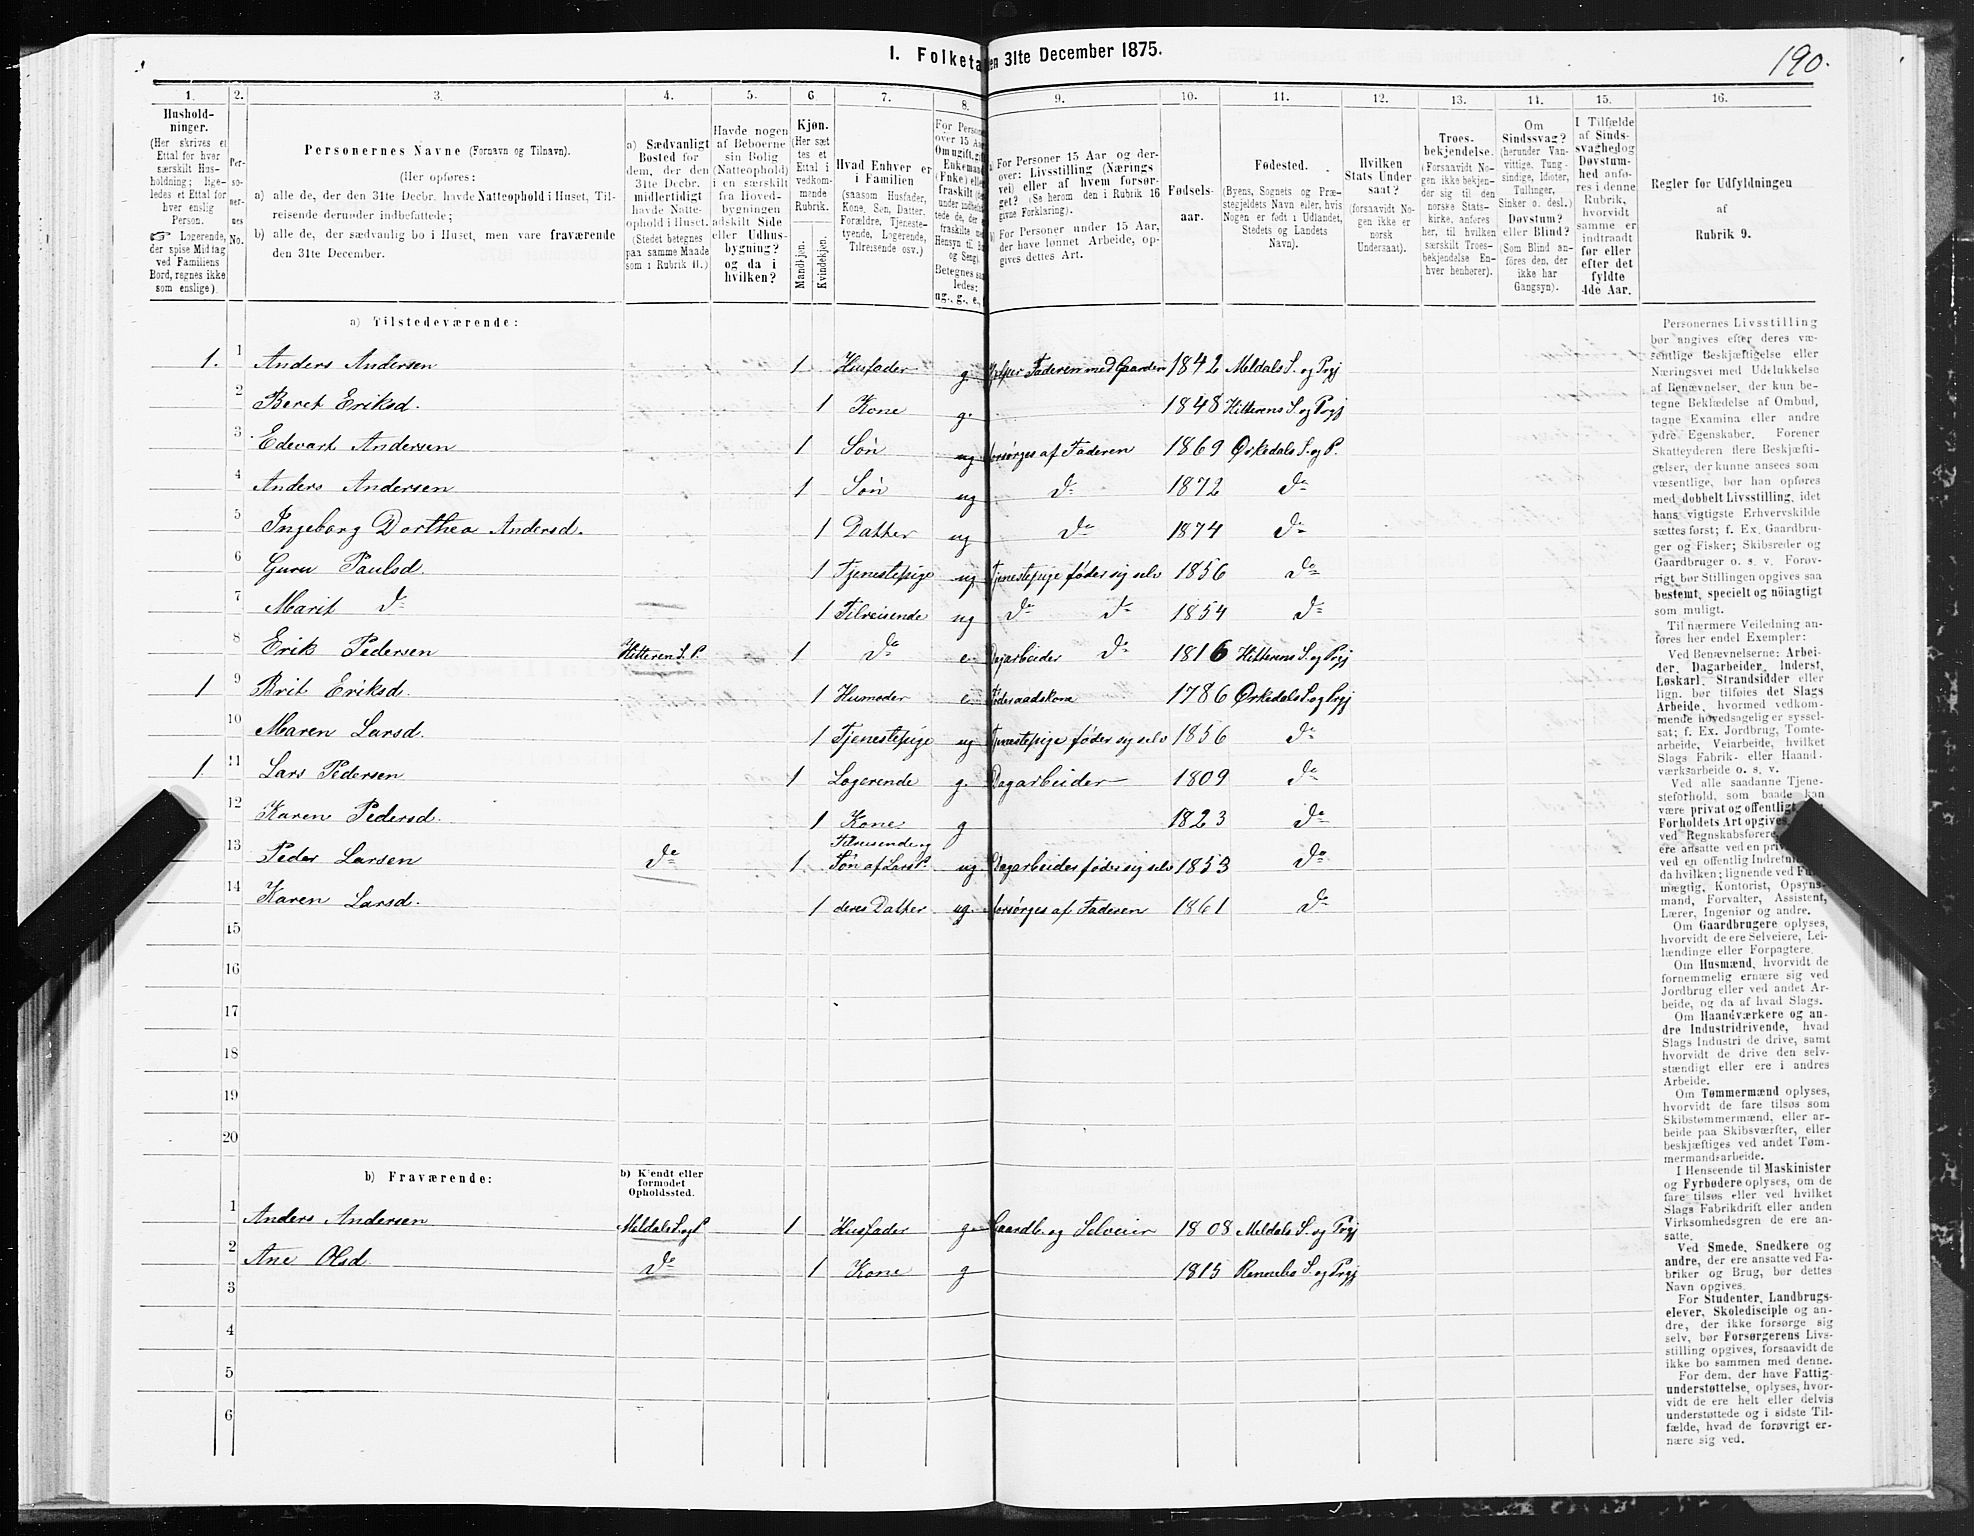 190.
I. Folketa en 31te December 1875.
1. 2. 3. 4. 5. 6. 7. 8. 9. 10. 11. 12. 13. 14. 15. 16.
Hushold-
ninger.
(Her skrives et
Ettal for hver
særskilt Hus-
holdning; lige-
ledes et Ettal for
hver enslig
Person.
☞ Logerende,
der spise Middag
ved Familiens
Bord, regnes ikke
som enslige).
Per-
so-
ner-
nes
No.
Personernes Navne (Fornavn og Tilnavn).
(Her opføres:
a) alle de, der den 31te Decbr. havde Natteophold i Huset, Til-
reisende derunder indbefattede;
b) alle de, der sædvanlig bo i Huset, men vare fraværende
den 31te December.
a) Sædvanligt
Bosted for
dem, der den
31te Decbr.
midlertidigt
havde Natte-
ophold i Huset.
(Stedet betegnes
paa samme Maade
som i Rubrik 11.)
Havde nogen
af Beboerne
sin Bolig
(Natteophold)
i en særskilt
fra Hoved-
bygningen
adskilt Side
eller Udhus-
bygning?
og da i
hvilken?
Kjøn.
(Her sæt
tes et
Ettal i
vedkom-
mende
Rubrik.
Mandkjøn.
Kvindekjøn.
Hvad Enhver er
i Familien
(saasom Husfader,
Kone, Søn, Datter,
Forældre, Tjeneste-
tyende, Logerende,
Tilreisende osv.)
For Persone
over 15 Aa
Om ugift, gif
Enkemand
(Enke) eller
fraskilt
Betegnes saa
ledes:
ug., g., e.,
For Personer 15 Aar og der-
over: Livsstilling (Nærings
vei) eller af hvem forsør-
get? (Se herom den i Rubrik 16
givne Forklaring).
For Personer under 15 Aar,
der have lønnet Arbeide, op-
gives dettes Art.
Fødsels-
aar.
Fødested.
(Byens, Sognets og Præ-
stegjeldets Navn eller, hvis
Nogen er født i Udlandet,
Stedets og Landets
Navn).
Hvilken
Stats Under
saat?
(forsaavidt No-
gen ikke er
norsk
Undersaat).
Troes-
bekjendelse.
(Forsaavidt No-
gen ikke bekjen-
der sig til den
norske Stats-
kirke, anføres
her, til hvilken
særskilt Troes-
bekjendelse En-
hver henhører).
Om
Sindssvag?
(herunder Van-
vittige, Tung-
sindige, Idioter,
Tullinger,
Sinker o. desl.)
Døvstum?
eller Blind?
(Som Blind an-
føres den, der
ikke har
Gangsyn).
I Tilfælde
af Sinds-
svaghed og
Døvstum-
hed anfø-
res i denne
Rubrik,
hvorvidt
samme er
indtraadt
før eller
efter det
fyldte
4de Aar.
Regler for Udfyldningen
af
Rubrik 9.
a) Tilstedeværende:
1. 1 Anders Andersen 1 Husfader g. Hjelper Faderen med Gaarden 1842 Meldals S. og Prgj
2 Beret Eriksd. 1 Kone g. 1848 Hitterens S. og Prgj
3 Edevart Andersen 1 Søn ug Forsørges af Faderen 1869 Ørkedals S. og P.
4 Anders Andersen 1 Søn ug do 1872 do
5 Ingeborg Dorthea Andersd. 1 Datter ug do 1874 do
6 Guru Paulsd. 1 Tjenestepige ug Tjenestepige føder sig selv 1856 do
7 Marit do 1 Tilreisende ug do do 1854 do
8 Erik Pedersen Hitteren S. P. 1 do e. Dagarbeider do 1816 Hitterens S. og Prgj
1 9 Brit Eriksd. 1 Husmoder e. Føderaadskone 1786 Ørkedals S. og Prgj
10 Maren Larsd. 1 Tjenestepige ug Tjenestepige føder sig selv 1856 do
1 11 Lars Pedersen 1 Logerende g. Dagarbeider 1809 do
12 Karen Pedersd. 1 Kone g 1823 do
13 Peder Larsen do 1 Tilreisende og Søn af Lars P. ug Dagarbeider føder sig selv 1853 do
14 Karen Larsd. 1 deres Datter ug. Forsørges af Faderen 1861 do
15
16
17
18
19
20
b) Fraværende:
b) Kjendt eller
formodet
Opholdssted.
1 Anders Andersen Meldals S. og P 1 Husfader g. Gaardb. og Selveier 1808 Meldals S. og Prgj
2 Ane Olsd. do 1 Kone g 1815 Rennebo S. og Prgj
3
4
5
6
Personernes Livsstilling
bør angives efter deres væ-
sentlige Beskjæftigelse eller
Næringsvei med Udelukkelse
af Benævnelser, der kun be-
tegne Beklædelse af Ombud,
tagne Examina eller andre
ydre Egenskaber. Forener
Skatteyderen flere Beskjæfti-
gelser, der kunne ansees som
væsentlige, bør han opføres
med dobbelt Livsstilling, idet
hans vigtigste Erhvervskilde
sættes først; f. Ex. Gaardbru-
ger og Fisker; Skibsreder og
Gaardbruger o. s. v. Forøv-
rigt bør Stillingen opgives saa
bestemt, specielt og nöiagtigt
som muligt.
Til nærmere Veiledning an-
føres her endel Exempler:
Ved Benævnelserne: Arbei-
der, Dagarbeider, Inderst,
Løskarl, Strandsidder eller
lign. bør tilføies det Slags
Arbeide, hvormed vedkom-
mende hovedsagelig er syssel-
sat; f. Ex. Jordbrug, Tomte-
arbeide, Veiarbeide, hvilket
Slags Fabrik- eller Haand-
værksarbeide o. s. v.
Ved alle saadanne Tjene-
steforhold, som baade kan
være privat og offentligt,
Forholdets Art opgives,
ved Regnskabsførere,
ere ansatte ved en
ved en offentlig Indretni
da hvilken; lignende ved Fuld-
mægtig, Kontorist, Opsyns-
mand, Forvalter, Assistent,
Lærer, Ingeniør og andre.
Om Gaardbrugere oplyses,
hvorvidt de ere Selveiere, Lei-
lændinge eller Forpagtere.
Om Husmænd, hvorvidt de
fornemmelig ernære sig ved
Jordbrug eller ved andet Ar-
beide, og da af hvad Slags.
Om Haandværkere og an-
dre Industridrivende, hvad
Slags Industri de drive, samt
hvorvidt de drive den selv-
stændigt eller ere i andres
Arbeide.
Om Tømmermænd oplyses,
hvorvidt de fare tilsøs som
Skibstømmermænd, eller ar-
beide paa Skibsværfter, eller
beskjæftiges ved andet Tøm-
mermandsarbeide.
I Henseende til Maskinister
og Fyrbødere oplyses, om de
fare tilsøs eller ved hvilket
Slags Fabrikdrift eller anden
Virksomhedsgren de ere an-
satte.
Ved Smede, Snedkere og
andre, der ere ansatte ved Fa-
briker og Brug, bør dettes
Navn opgives.
For Studenter, Landbrugs-
elever, Skoledisciple og an-
dre, der ikke forsørge sig
selv, bør Forsørgerens Livs-
stilling opgives, forsaavidt de
ikke bo sammen med denne.
For dem, der have Fattig-
understøttelse, oplyses, hvor-
vidt de ere helt eller delvis
understøttede og i sidste Til-
fælde, hvad de forøvrigt er-
nære sig ved.